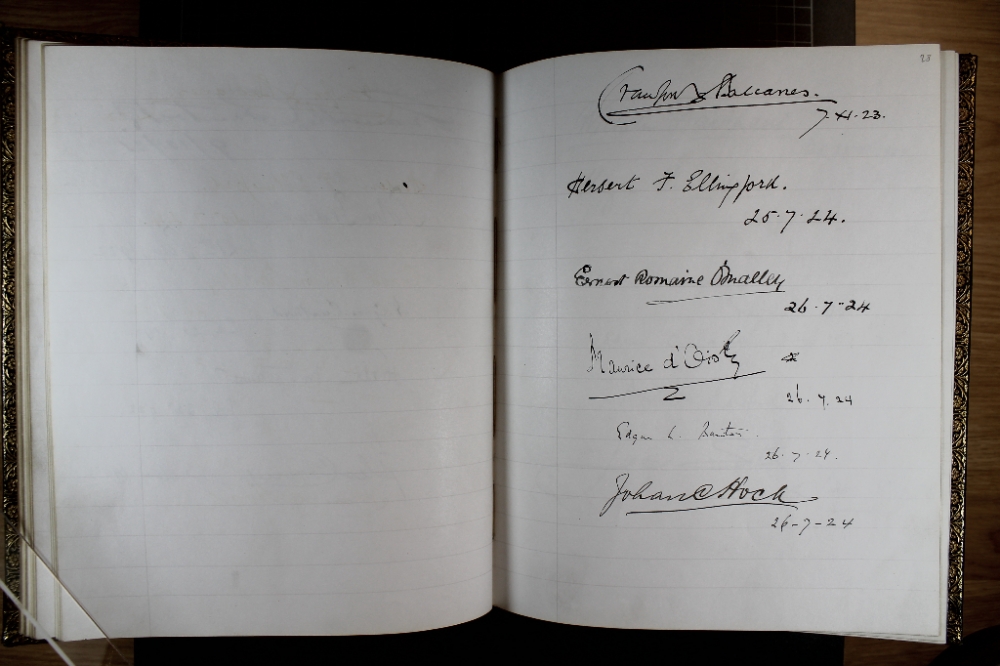 28
Crawford & Balcarres.
7.XI.23.
Herbert F. Ellingford.
25.7.24.
Ernest Romaine O'malley
26.7-24
Maurice d'Oisly
26.7.24
Edgar L. Bainton.
26-7-24.
Johan C Hock
26-7-24